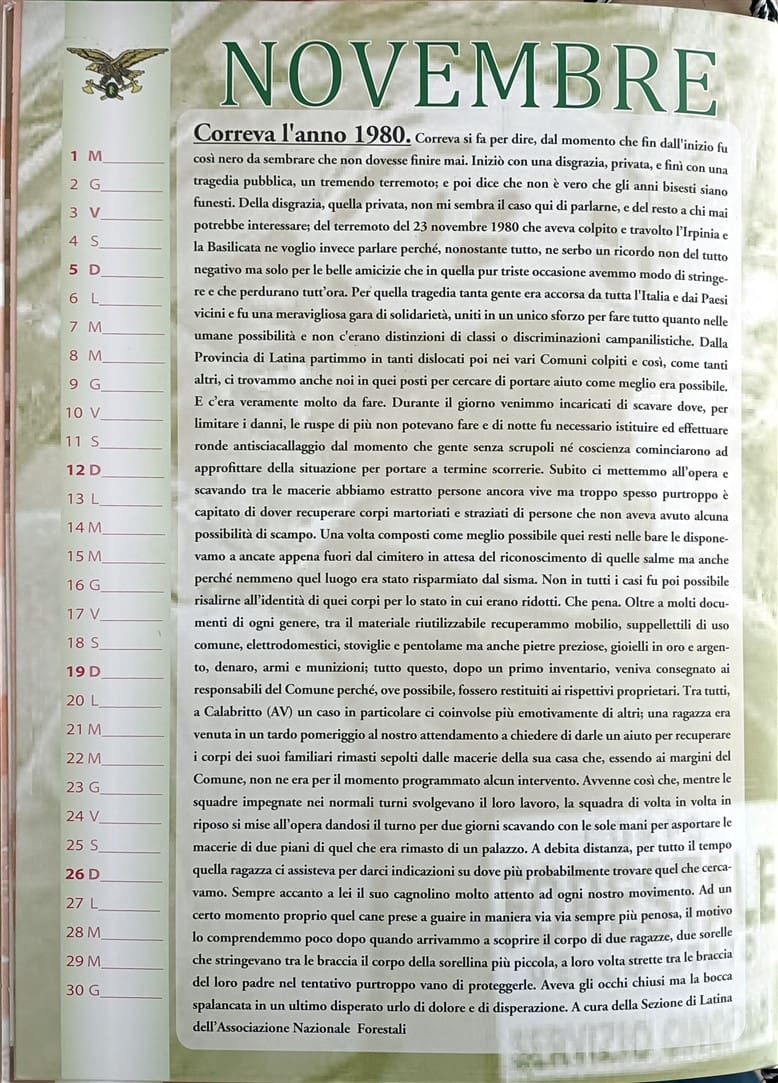 NOVEMBRE
1 M
2 G
3 V
4 S
5 D
6 L
7 M
8 M
9 G
10 V
11 S
12 D
13 L
14 M
15 M
16 G
17 V
18 S
19 D
20 L
21 M
22 M
23 G
24 V
25 S
26 D
27 L
28 M
29 M
30 G
Correva l'anno 1980. Correva si fa per dire, dal momento che fin dall'inizio fu
così nero da sembrare che non dovesse finire mai. Iniziò con una disgrazia, privata, e finì con una
tragedia pubblica, un tremendo terremoto; e poi dice che non è vero che gli anni bisesti siano
funesti. Della disgrazia, quella privata, non mi sembra il caso qui di parlarne, e del resto a chi mai
potrebbe interessare; del terremoto del 23 novembre 1980 che aveva colpito e travolto l'Irpinia e
la Basilicata ne voglio invece parlare perché, nonostante tutto, ne serbo un ricordo non del tutto
negativo ma solo per le belle amicizie che in quella pur triste occasione avemmo modo di stringe-
re e che perdurano tutt'ora. Per quella tragedia tanta gente era accorsa da tutta l'Italia e dai Paesi
vicini e fu una meravigliosa gara di solidarietà, uniti in un unico sforzo per fare tutto quanto nelle
umane possibilità e non c'erano distinzioni di classi o discriminazioni campanilistiche. Dalla
Provincia di Latina partimmo in tanti dislocati poi nei vari Comuni colpiti e così, come tanti
altri, ci trovammo anche noi in quei posti per cercare di portare aiuto come meglio era possibile.
E c'era veramente molto da fare. Durante il giorno venimmo incaricati di scavare dove, per
limitare i danni, le ruspe di più non potevano fare e di notte fu necessario istituire ed effettuare
ronde antisciacallaggio dal momento che gente senza scrupoli né coscienza cominciarono ad
approfittare della situazione per portare a termine scorrerie. Subito ci mettemmo all'opera e
scavando tra le macerie abbiamo estratto persone ancora vive ma troppo spesso purtroppo è
capitato di dover recuperare corpi martoriati e straziati di persone che non aveva avuto alcuna
possibilità di scampo. Una volta composti come meglio possibile quei resti nelle bare le dispone-
vamo a ancate appena fuori dal cimitero in attesa del riconoscimento di quelle salme ma anche
perché nemmeno quel luogo era stato risparmiato dal sisma. Non in tutti i casi fu poi possibile
risalirne all'identità di quei corpi per lo stato in cui erano ridotti. Che pena. Oltre a molti docu-
menti di ogni genere, tra il materiale riutilizzabile recuperammo mobilio, suppellettili di uso
comune, elettrodomestici, stoviglie e pentolame ma anche pietre preziose, gioielli in oro e argen-
to, denaro, armi e munizioni; tutto questo, dopo un primo inventario, veniva consegnato ai
responsabili del Comune perché, ove possibile, fossero restituiti ai rispettivi proprietari. Tra tutti,
a Calabritto (AV) un caso in particolare ci coinvolse più emotivamente di altri; una ragazza era
venuta in un tardo pomeriggio al nostro attendamento a chiedere di darle un aiuto per recuperare
i corpi dei suoi familiari rimasti sepolti dalle macerie della sua casa che, essendo ai margini del
Comune, non ne era per il momento programmato alcun intervento. Avvenne così che, mentre le
squadre impegnate nei normali turni svolgevano il loro lavoro, la squadra di volta in volta in
riposo si mise all'opera dandosi il turno per due giorni scavando con le sole mani per asportare le
macerie di due piani di quel che era rimasto di un palazzo. A debita distanza, per tutto il tempo
quella ragazza ci assisteva per darci indicazioni su dove più probabilmente trovare quel che cerca-
vamo. Sempre accanto a lei il suo cagnolino molto attento ad ogni nostro movimento. Ad un
certo momento proprio quel cane prese a guaire in maniera via via sempre più penosa, il motivo
lo comprendemmo poco dopo quando arrivammo a scoprire il corpo di due ragazze, due sorelle
che stringevano tra le braccia il corpo della sorellina più piccola, a loro volta strette tra le braccia
del loro padre nel tentativo purtroppo vano di proteggerle. Aveva gli occhi chiusi ma la bocca
spalancata in un ultimo disperato urlo di dolore e di disperazione. A cura della Sezione di Latina
dell'Associazione Nazionale Forestali